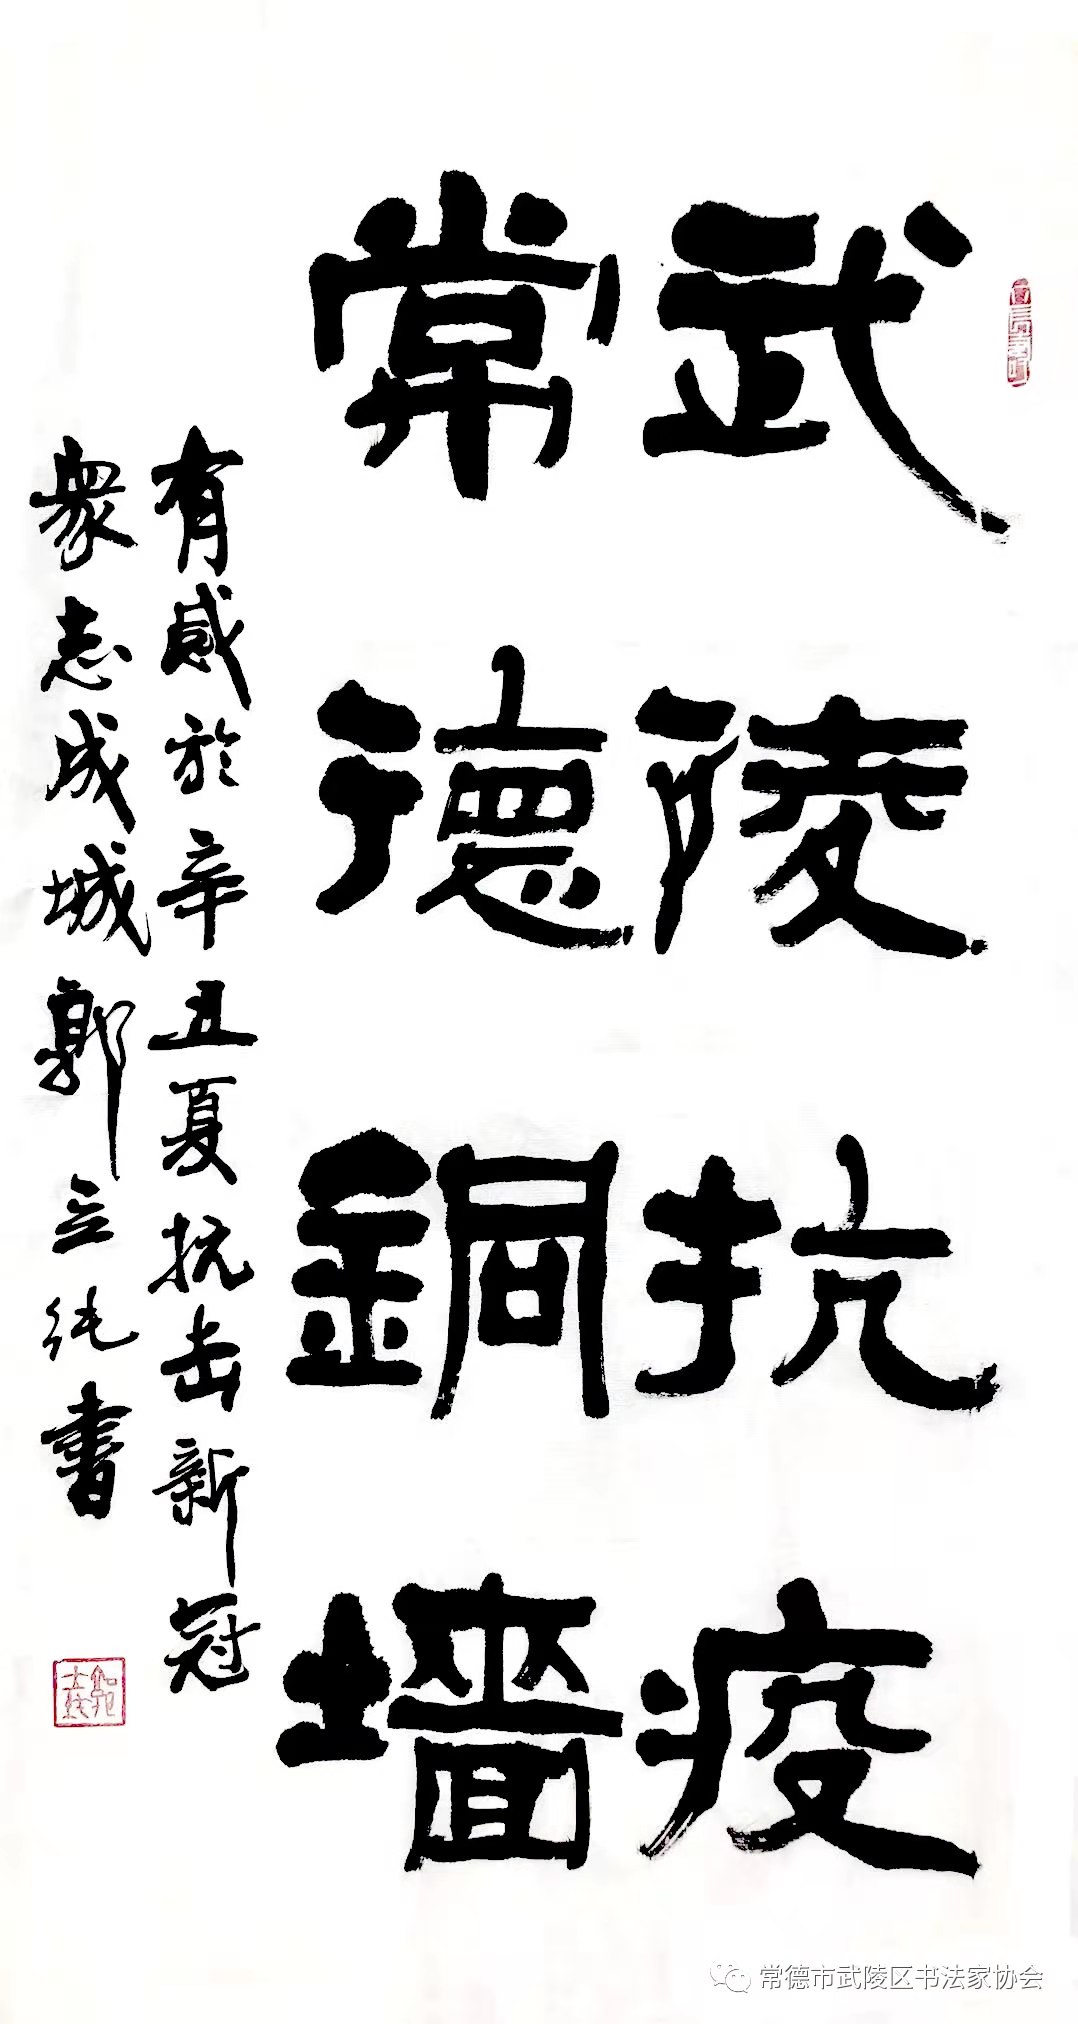 武陵抗疫
常德銅墻
有感於辛丑夏抗击新冠
衆志成城郭立純書
常德市武陵区书法家协会